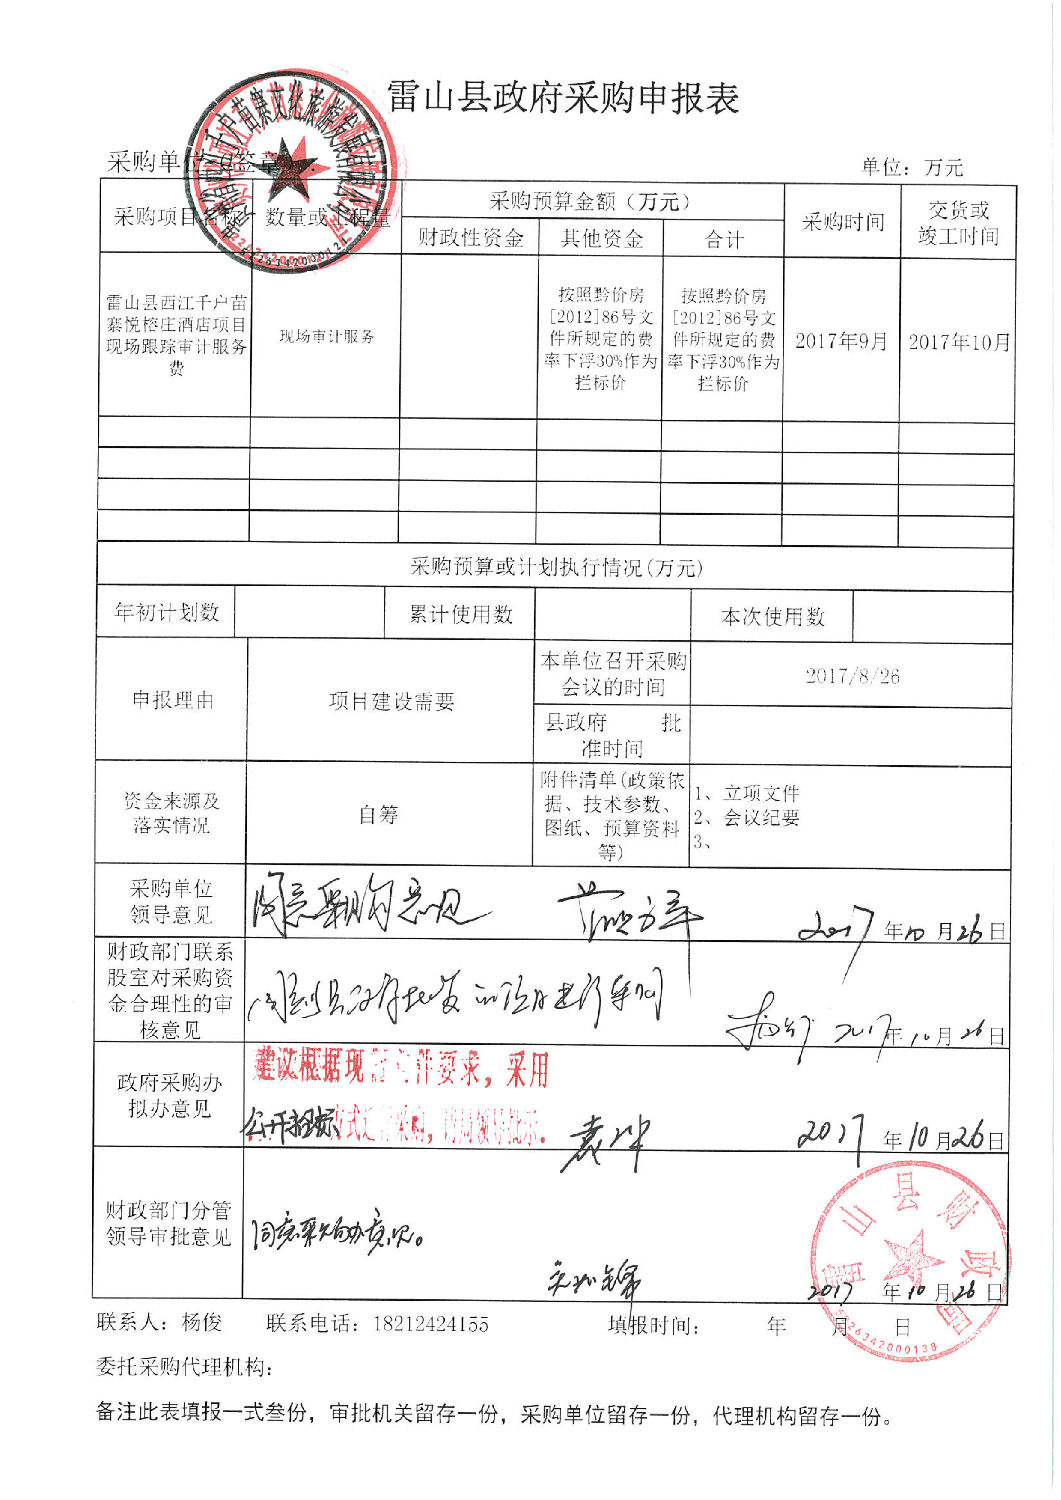 雷山县政府采购申报表
采购单位（签章）：
单位：万元
采购项目名称
数量或工程量
采购预算金额（万元）
财政性资金
其他资金
合计
采购时间
交货或
竣工时间
雷山县西江千户苗
寨悦榕庄酒店项目
现场跟踪审计服务
费
现场审计服务
按照黔价房
[2012]86号文
件所规定的费
率下浮30%作为
拦标价
按照黔价房
[2012]86号文
件所规定的费
率下浮30%作为
拦标价
2017年9月
2017年10月
采购预算或计划执行情况(万元)
年初计划数
累计使用数
本次使用数
申报理由
项目建设需要
本单位召开采购
会议的时间
2017/8/26
县政府 批
准时间
资金来源及
落实情况
自筹
附件清单(政策依
据、技术参数、
图纸、预算资料
等)
1、立项文件
2、会议纪要
3、
采购单位
领导意见
2017年10月26日
财政部门联系
股室对采购资
金合理性的审
核意见
2017年10月26日
政府采购办
拟办意见
建议根据现 文件要求，采用
公开招标方式进行采购，请局领导批示。
2017年10月26日
财政部门分管
领导审批意见
同意采购办意见。
2017年10月26日
雷山县财政局
5226342000138
联系人：杨俊 联系电话：18212424155 填报时间： 年 月 日
委托采购代理机构：
备注此表填报一式叁份，审批机关留存一份，采购单位留存一份，代理机构留存一份。